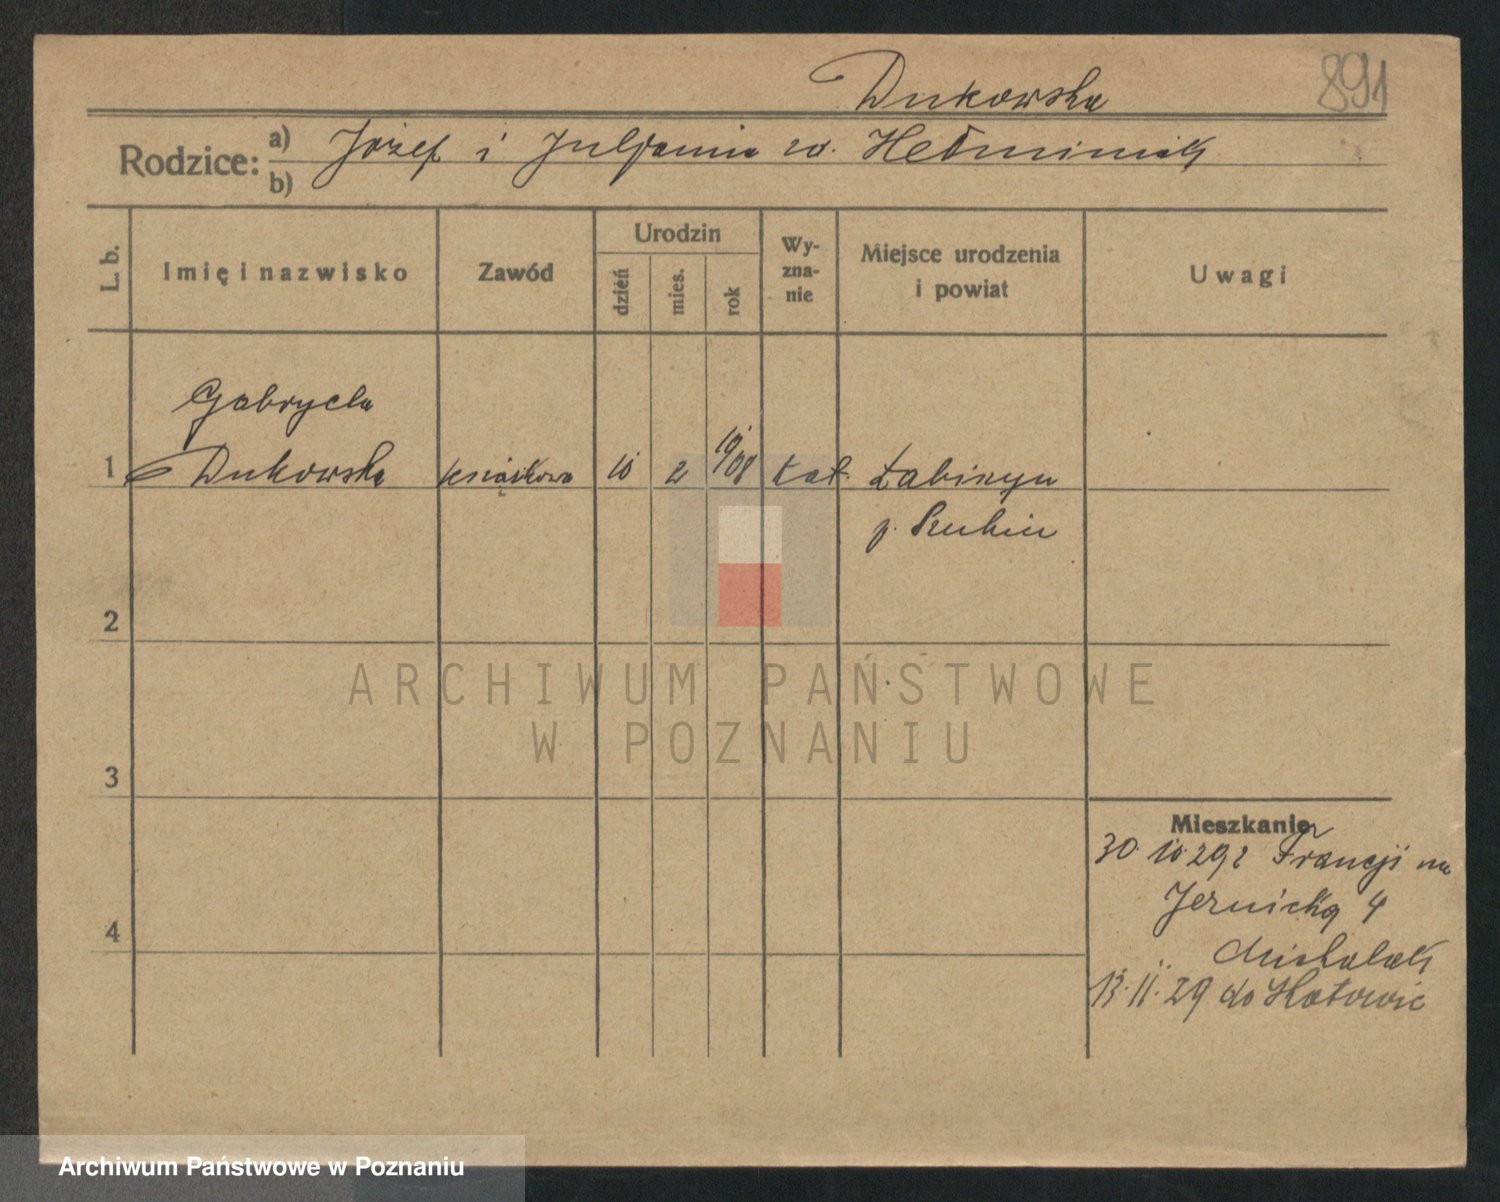 Dukowska
891
Rodzice: a) Józef i Juljanna z d. Hełminiak
b)
L. b.
Imię i nazwisko
Zawód
Urodzin
dzień
mies.
rok
Wy-
zna-
nie
Miejsce urodzenia
i powiat
Uwagi
Gabryela
1 Dukowska 10 2 19/08 kat. Łabiszyn
p. Szubin
2
3
4
ARCHIWUM PAŃSTWOWE
W POZNANIU
Mieszkanie
30.10.29 z Francji na
4
Michalak
13.11.29 do Katowic
Archiwum Państwowe w Poznaniu